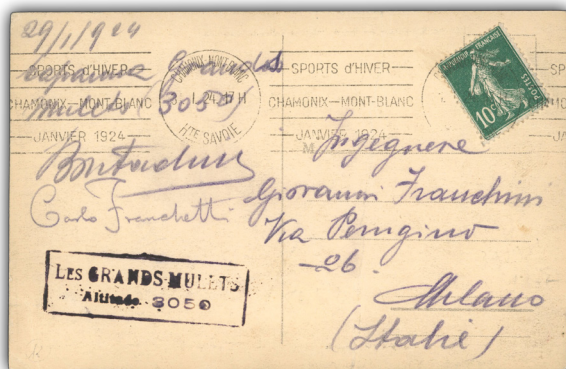 29/1/924
Grands
Mulets 3050
SPORTS d'HIVER
CHAMONIX-MONT-BLANC
JANVIER 1924
CHAMONIX-MONT-BLANC
-1 24 17 H
HTE SAVOIE
SPORTS d'HIVER
CHAMONIX-MONT-BLANC
JANVIER 1924
REPUBLIQUE FRANÇAISE
POSTES
10c
Carlo Franchetti
LES GRANDS-MULETS
Altitude 3050
Ingegnere
Giovanni Franchini
Via Perugino
-26.
Milano
(Italie)